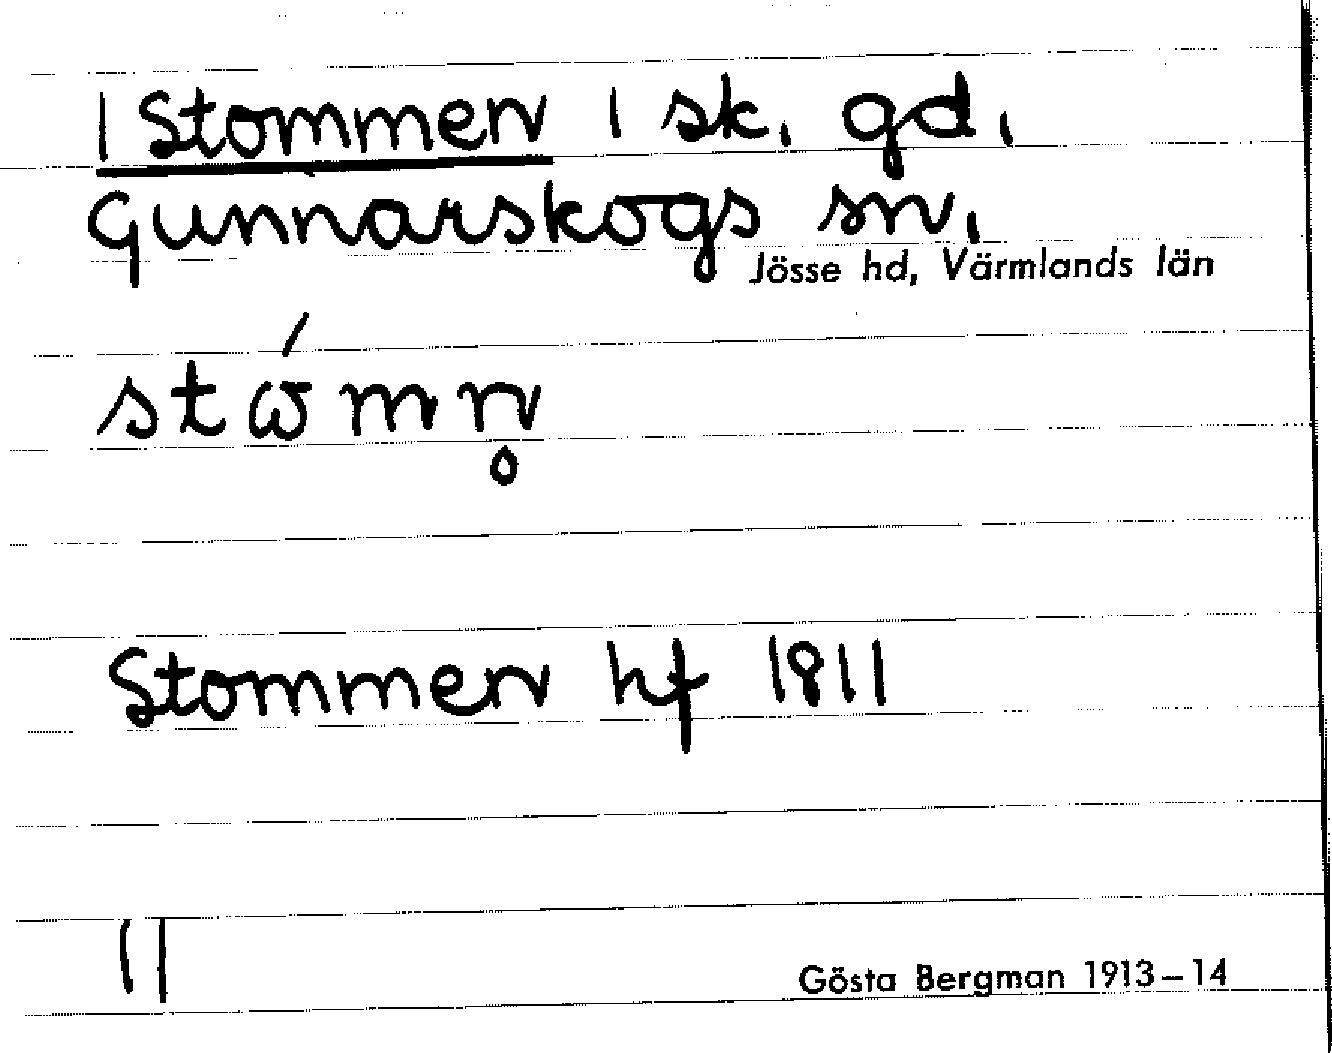 1 Stommen 1 sk. gd.
Gunnarskogs sn.
Jösse hd, Värmlands län
stώmn̥
Stommen hf 1811
11
Gösta Bergman 1913–14